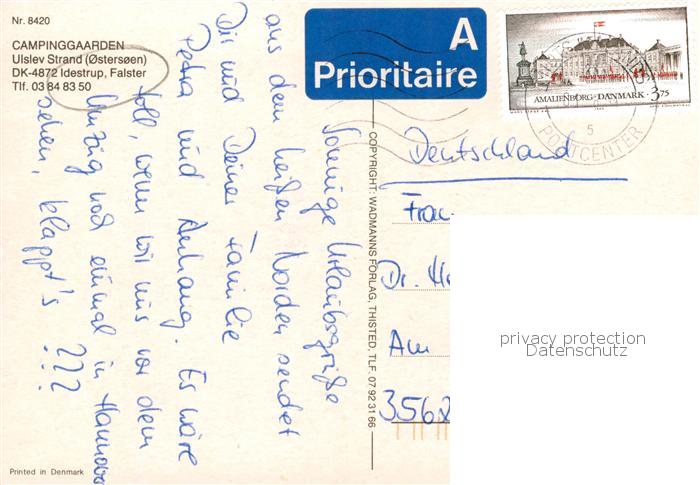 Nr. 8420
CAMPINGGAARDEN
Ulslev Strand (Østersøen)
DK-4872 Idestrup, Falster
Tlf. 03 84 83 50
A
Prioritaire
AMALIENBORG·DANMARK·3.75
POSTCENTER
5
Sonnige Urlaubsgrüße
aus dem heißen Norden sendet
Dir und Deiner Familie
Petra und Anhang. Es wäre
toll, wenn wir uns vor dem
Umzug noch einmal in Hannover
sehen, klappt's ???
COPYRIGHT: WADMANNS FORLAG, THISTED, TLF. 07 92 31 66
Deutschland
Frau
Dr. He
Am
3562
privacy protection
Datenschutz
Printed in Denmark